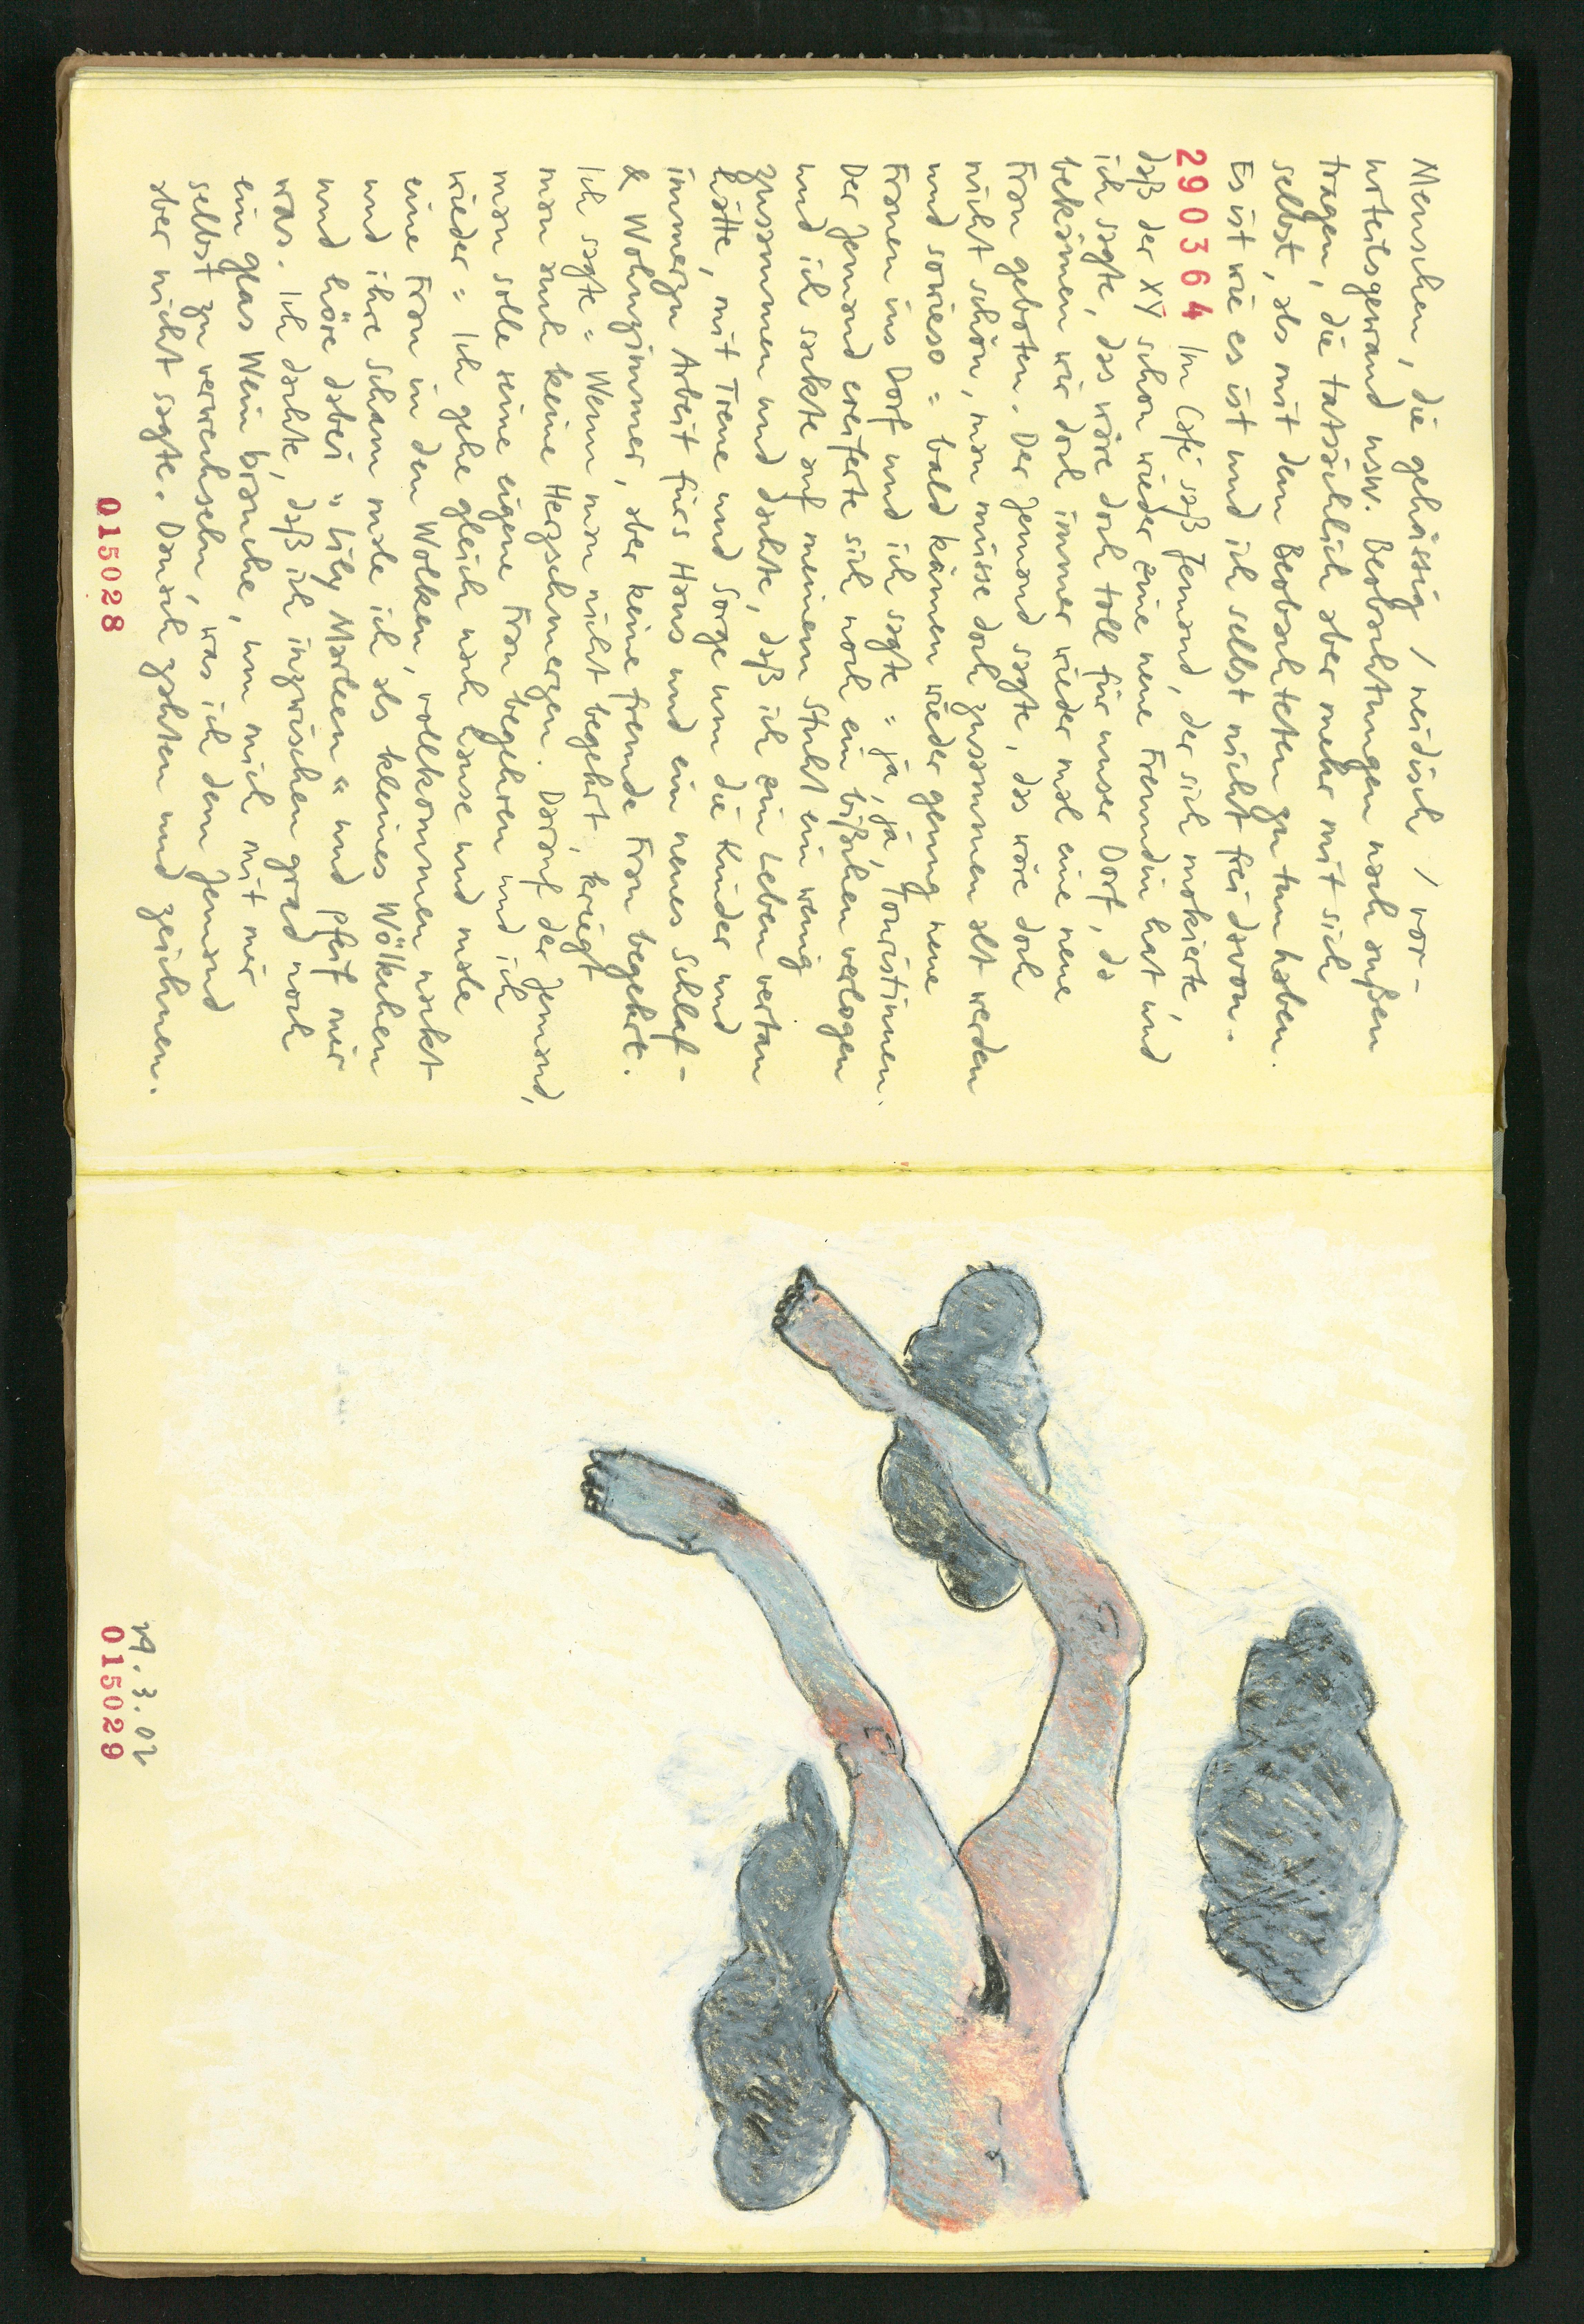 Menschen, die gehässig / neidisch / vor-
urteilsgewand usw. Beobachtungen nach außen
tragen, die tatsächlich aber mehr mit sich
selbst, als mit dem Beobachteten zu tun haben.
Es ist wie es ist und ich selbst nicht frei davon.
290364 Im Café saß Jemand, der sich mokierte,
daß der XY schon wieder eine neue Freundin hat und
ich sagte, das wäre doch toll für unser Dorf, da
bekämen wir doch immer wieder mal eine neue
Frau geboten. Der Jemand sagte, das wäre doch
nicht schön, man müsse doch zusammen alt werden
und sowieso = bald kämen wieder genug neue
Frauen ins Dorf und ich sagte = ja, ja, Touristinnen.
Der Jemand ereiferte sich noch ein bißchen verlogen
und ich sackte auf meinem Stuhl ein wenig
zusammen und dachte, daß ich ein Leben vertan
hätte, mit Treue und Sorge um die Kinder und
immerzu Arbeit fürs Haus und ein neues Schlaf-
& Wohnzimmer, aber keine fremde Frau begehrt.
Ich sagte = Wenn man nicht begehrt, kriegt
man auch keine Herzschmerzen. Darauf der Jemand,
man solle seine eigene Frau begehren und ich
wieder = Ich gehe gleich nach hause und male
eine Frau in den Wolken, vollkommen nackt
und ihre Scham male ich als kleines Wölkchen
und höre dabei "Lily Marleen" und pfeif mir
was. Ich dachte, daß ich inzwischen grad noch
ein glas Wein brauche, um mich mit mir
selbst zu verwechseln, was ich dem Jemand
aber nicht sagte. Danach zahlen und zeichnen.
015028
29.3.02
015029